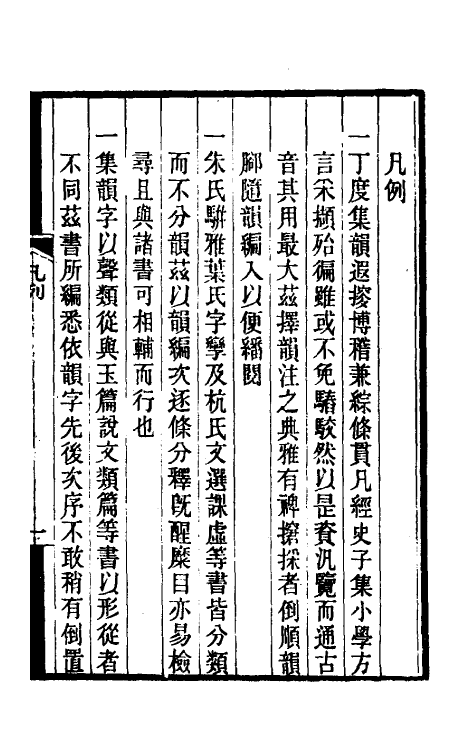 凡例
一丁度集韻遐搜博稽兼綜條貫凡經史子集小學方
言采擷殆徧雖或不免騞駮然以是資汎覽而通古
音其用最大茲擇韻注之典雅有裨搴採者倒順韻
腳隨韻編入以便繙閱
一朱氏駢雅葉氏字孿及杭氏文選課虛等書皆分類
而不分韻茲以韻編次逐條分釋旣醒縻目亦易檢
尋且與諸書可相輔而行也
一集韻字以聲類從與玉篇說文類篇等書以形從者
不同茲書所編悉依韻字先後次序不敢稍有倒置
凡例
一